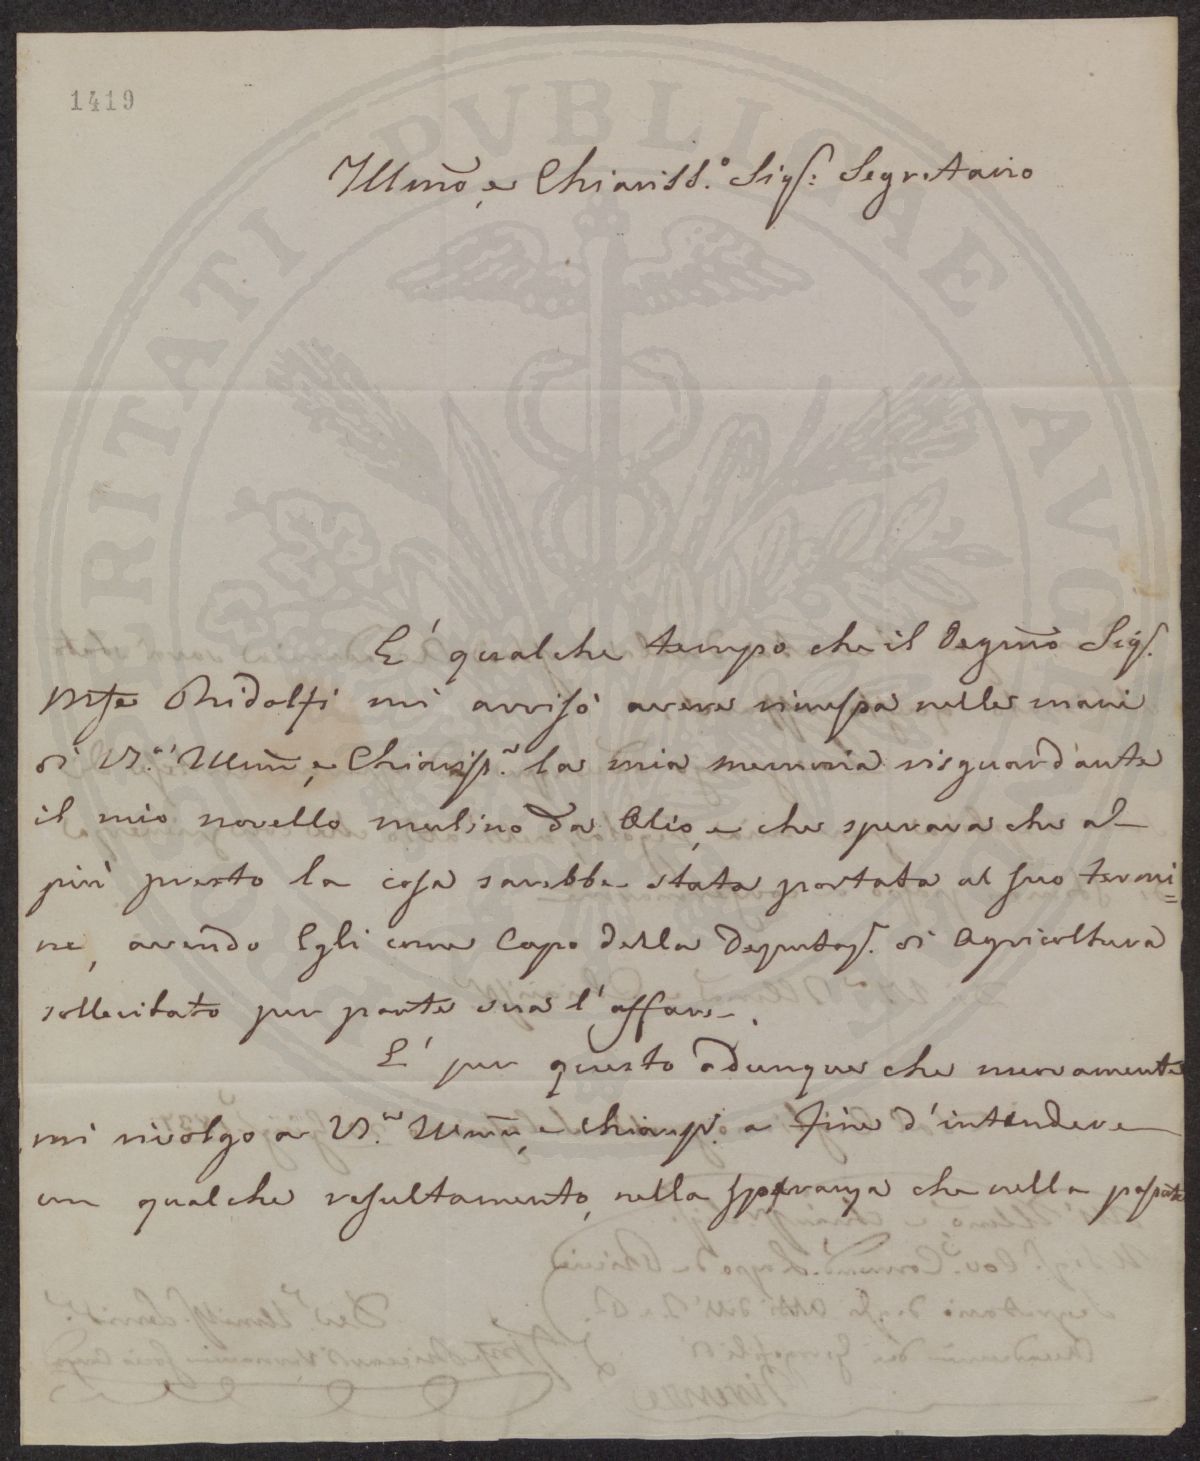 1419
Illmo, e Chiariss.o Sigr: Segretario
E' qualche tempo che il Degmo Sigr.
Mse Ridolfi mi avvisò avere rimessa nelle mani
di V.a Illma, e Chiariss.a la mia memoria risguardante
il mio novello mulino da Olio, e che sperava che al
più presto la cosa sarebbe stata portata al suo termi=
ne, avendo Egli come Capo della Deputaz. di Agricoltura
sollecitato per parte sua l'affare.
E' per questo adunque che nuovamente
mi rivolgo a V.a Illma, e Chiariss. a fine d'intendere
un qualche resultamento, nella speranza che nella
PVBLICAE